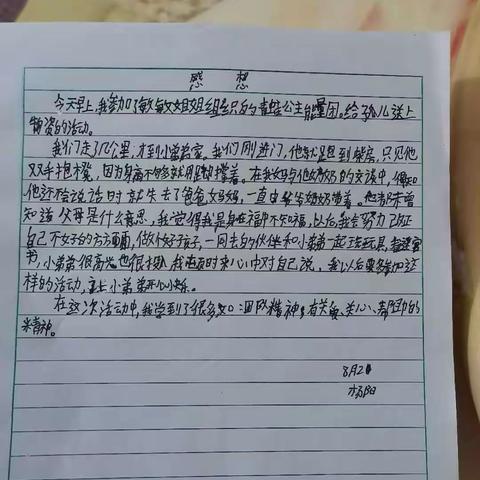 感想
今天早上,我参加了敏敏姐姐组织的青蛙公主能量团。给孤儿送上
物资的活动。
我们走了几公里,才到小弟弟家。我们刚进门,他就跑到厨房,只见他
双手抱
在我妈与他奶奶的交谈中,得知
他还不会说话时就失去了爸爸妈妈,一直由爷爷奶奶带着。他都未曾
知道父母是什么意思,我觉得我是身在福中不知福,以后我会努力改正
自己不好的方方面面,做个好孩子,一同去的伙伴和小弟弟一起玩玩具,
书,小弟弟很高兴也很
我在心中对自己说,我以后要多参加这
样的活动,让小弟弟开心
在这次活动中,我学到了很多如:团队精神,有关爱、关心、帮助的
精神。
8月2
杨阳